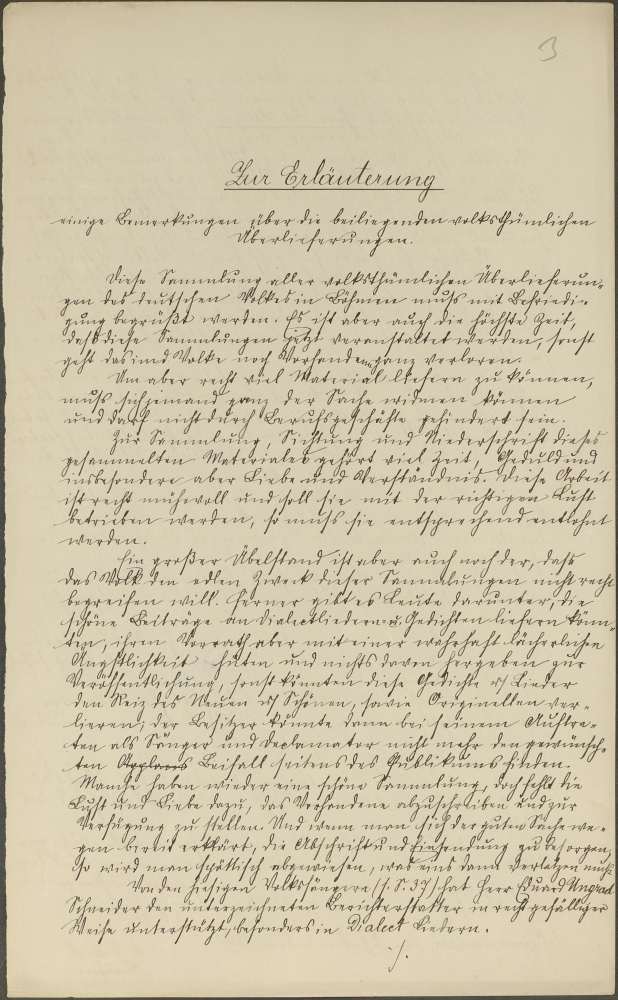 3
Zur Erläuterung
einige Bemerkungen über die beiliegenden volksthümlichen
Überlieferungen.
Diese Sammlung aller volksthümlichen Überlieferun-
gen des deutschen Volkes in Böhmen muß mit Befriedi-
gung begrüßt werden. Es ist aber auch die höchste Zeit,
daß diese Sammlungen jetzt veranstaltet werden, sonst
geht das im Volke noch Vorhandene ganz verloren.
Um aber recht viel Material liefern zu können,
muß sich jemand ganz der Sache widmen können
und darf nicht durch Berufsgeschäfte gehindert sein.
Zur Sammlung, Sichtung und Niederschrift dieses
gesammelten Materiales gehört viel Zeit, Geduld und
insbesondere aber Liebe und Verständnis. Diese Arbeit
ist recht mühevoll und soll sie mit der richtigen Lust
betrieben werden, so muß sie entsprechend entlohnt
werden.
Ein großer Übelstand ist aber auch noch der, daß
das Volk den edlen Zweck dieser Sammlungen nicht recht
begreifen will. Ferner gibt es Leute darunter, die
schöne Beiträge an Dialectliedern u. Gedichten liefern könn-
ten, ihren Vorrath aber mit einer wahrhaft lächerlichen
Ängstlichkeit hüten und nichts davon hergeben zur
Veröffentlichung, sonst könnten diese Gedichte u. Lieder
den Reiz des Neuen u. Schönen, sowie Originellen ver-
lieren; der Besitzer könnte dann bei seinem Auftre-
ten als Sänger und Declamator nicht mehr den gewünsch-
ten Beifall seitens des Publikums finden.
Manche haben wieder eine schöne Sammlung, doch fehlt die
Lust und Liebe dazu, das Vorhandene abzuschreiben und zur
Verfügung zu stellen. Und wenn man sich der guten Sache we-
gen bereit erklärt, die Abschrift und Einsendung zu besorgen,
so wird man spöttisch abgewiesen, was eins dann verletzen muß.
Von den hiesigen Volkssängern (s. S. 37) hat Herr Eduard
Schneider den unterzeichneten Berichterstatter in recht gefälliger
Weise unterstützt, besonders in Dialect Liedern.
./.